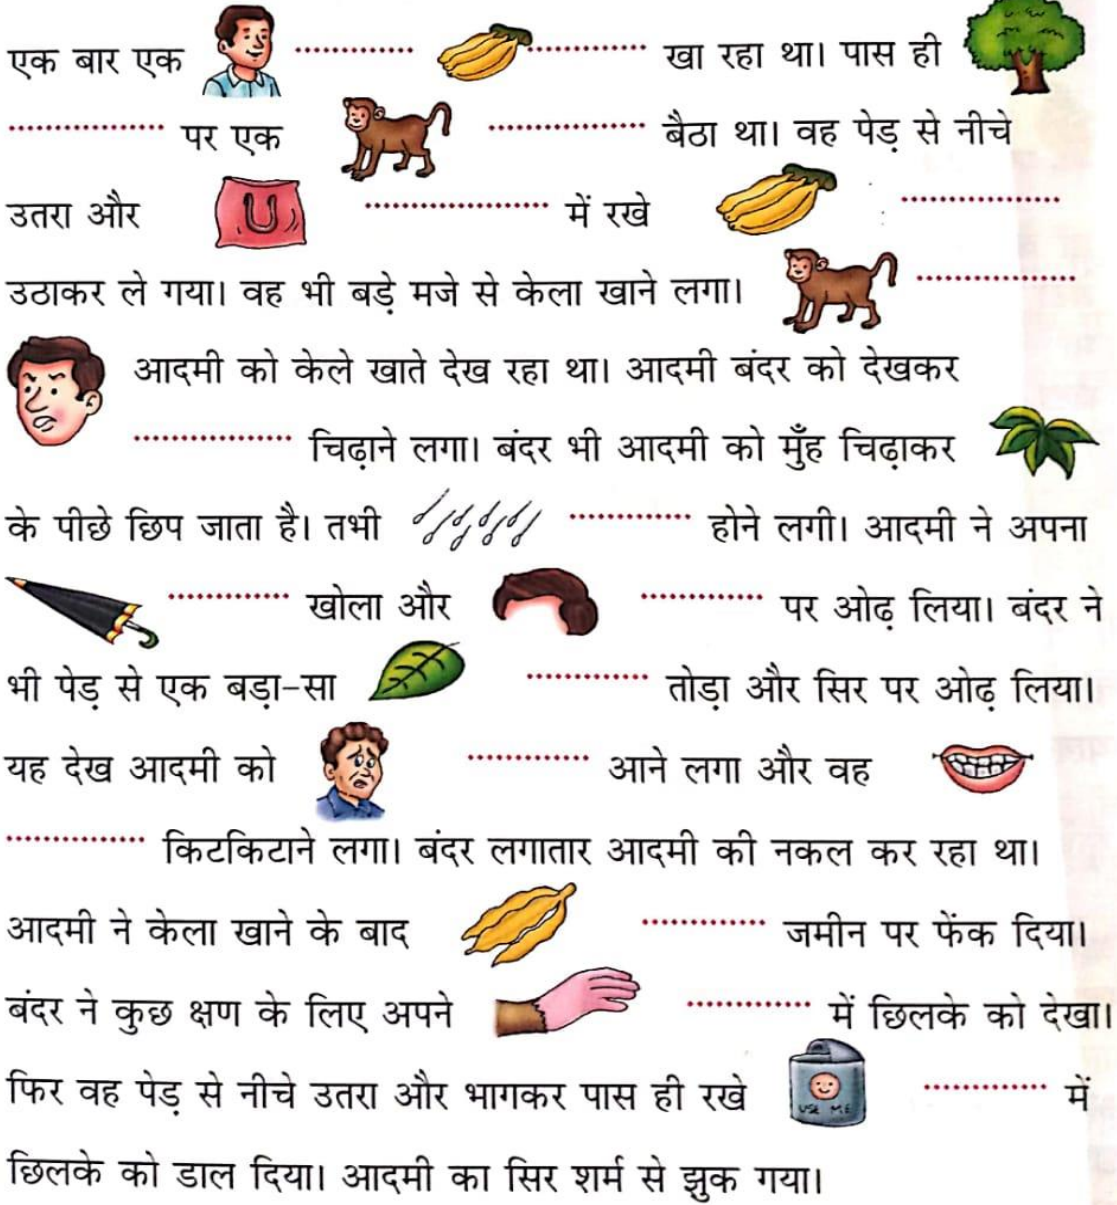 एक बार एक .................. .................. खा रहा था। पास ही
.................. पर एक .................. बैठा था। वह पेड़ से नीचे
उतरा और .................. में रखे ..................
उठाकर ले गया। वह भी बड़े मजे से केला खाने लगा। ..................
आदमी को केले खाते देख रहा था। आदमी बंदर को देखकर
.................. चिढ़ाने लगा। बंदर भी आदमी को मुँह चिढ़ाकर
के पीछे छिप जाता है। तभी .................. होने लगी। आदमी ने अपना
.................. खोला और .................. पर ओढ़ लिया। बंदर ने
भी पेड़ से एक बड़ा-सा .................. तोड़ा और सिर पर ओढ़ लिया।
यह देख आदमी को .................. आने लगा और वह
.................. किटकिटाने लगा। बंदर लगातार आदमी की नकल कर रहा था।
आदमी ने केला खाने के बाद .................. जमीन पर फेंक दिया।
बंदर ने कुछ क्षण के लिए अपने .................. में छिलके को देखा।
फिर वह पेड़ से नीचे उतरा और भागकर पास ही रखे USE ME .................. में
छिलके को डाल दिया। आदमी का सिर शर्म से झुक गया।